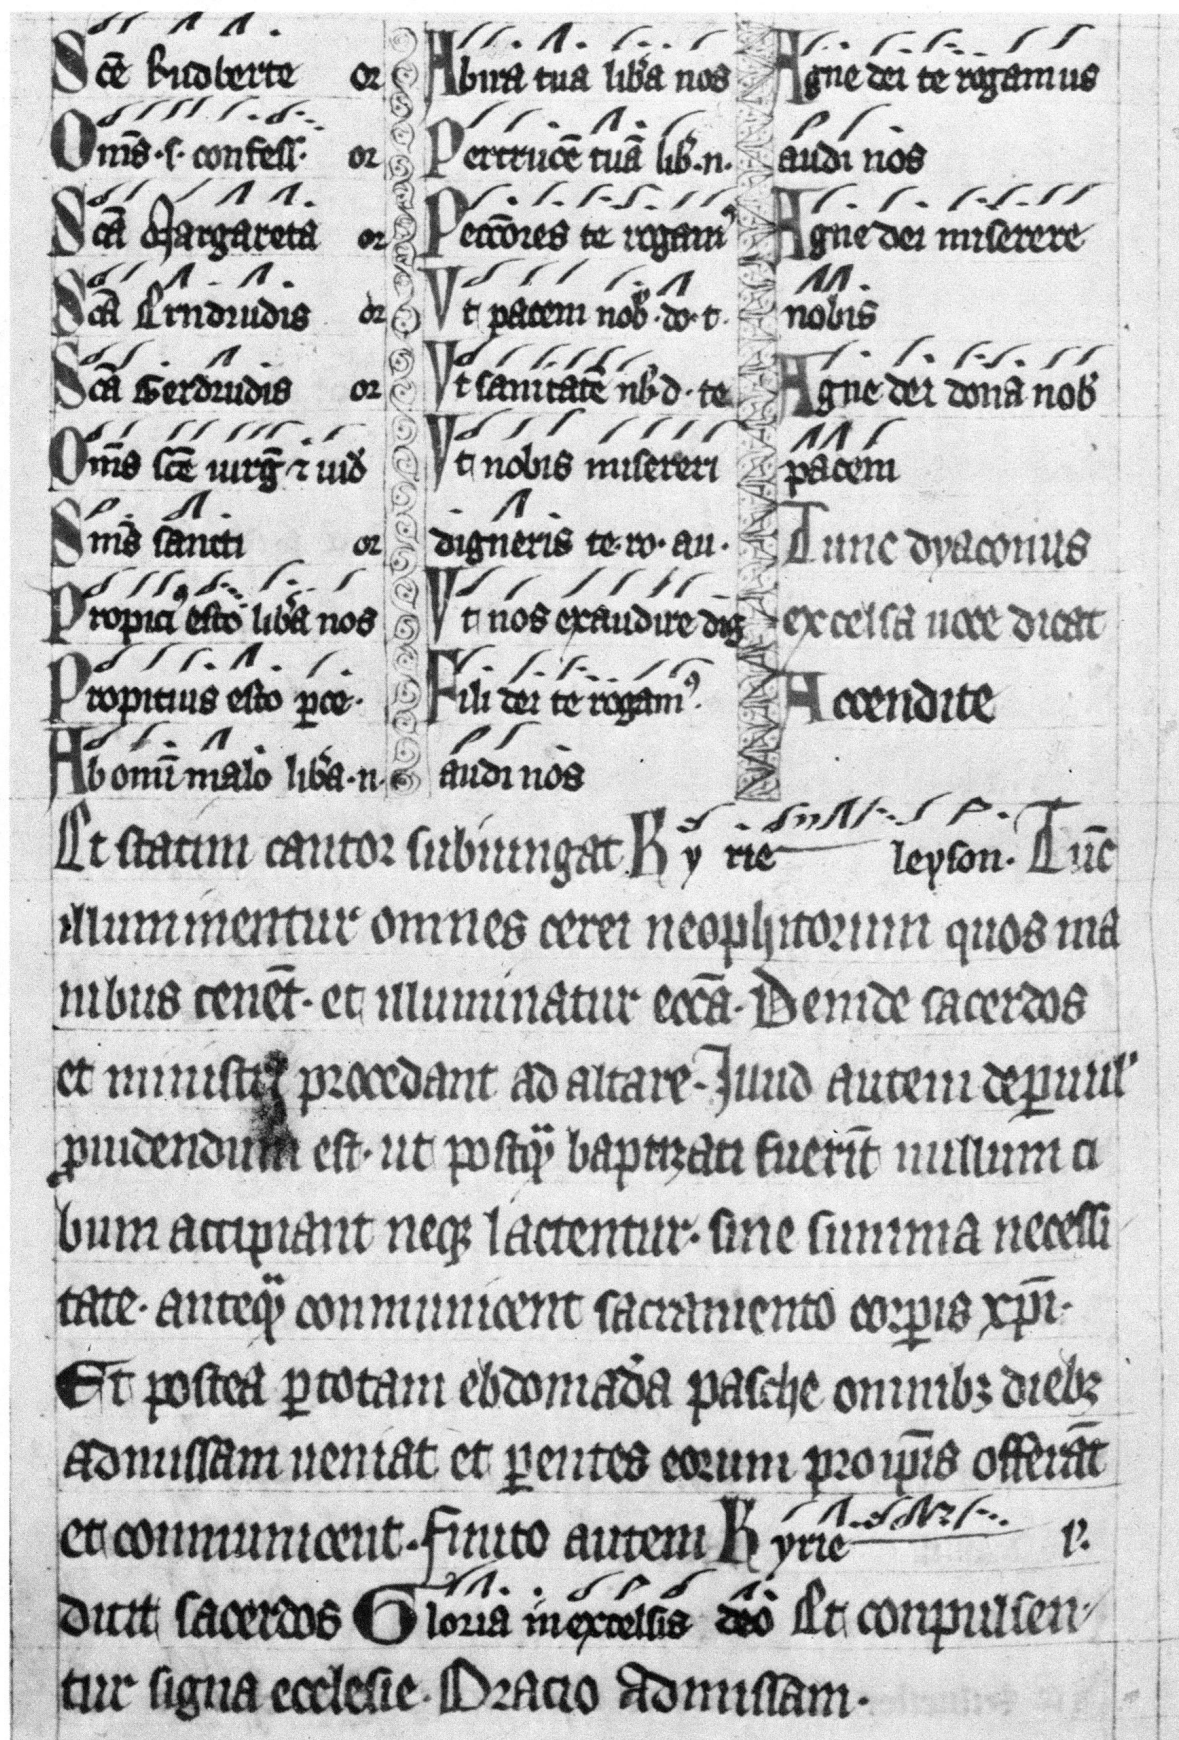 Scē Rudberte or
Om̄s · s · confess · or
Scā Margareta or
Scā Erndrudis or
Scā Gerdrudis or
Om̄s scē uirḡ ⁊ uid
Om̄s sancti or
Propici⁹ esto lib̄a nos
Propicius esto ꝑce ·
Ab omī malo lib̄a · n ·
Ab ira tua lib̄a nos
Per crucē tuā lib̄ · n ·
Pecc̄ores te rogam⁹
Ut pacem nob̄ · do · t ·
Ut sanitatē nb̄ d · te
Ut nobis misereri
digneris te · ro · au ·
Ut nos exaudire dig
Fili dei te rogam⁹ ·
audi nos
Agne dei te rogamus
audi nos
Agne dei miserere
nobis
Agne dei dona nob̄
pacem
Tunc dyaconus
excelsa uoce dicat
Accendite
Et statim cantor subiungat Kyrie leyson · Tūc
illuminentur omnes cerei neophitorum quos ma
nibus tenēt · et illuminatur ecc̄a · Deinde sacerdos
et ministri procedant ad altare · Illud autem de ꝑuul'
ꝓuidendum est · ut postq̄ baptizati fuerīt nullum ci
bum accipiant neqꝫ lactentur · sine summa necessi
tate · anteq̄ conmunicent sacramento corꝑis xp̄i ·
Et postea ꝑ totam ebdomada pasche omnibꝫ diebꝫ
ad missam ueniat et ꝑentes eorum pro ip̄is offerāt
et conmunicent · Finito autem Kyrie l' ·
dicit sacerdos Gloria in excelsis deo Et conpulsen
tur signa ecclesie · Oracio ad missam ·